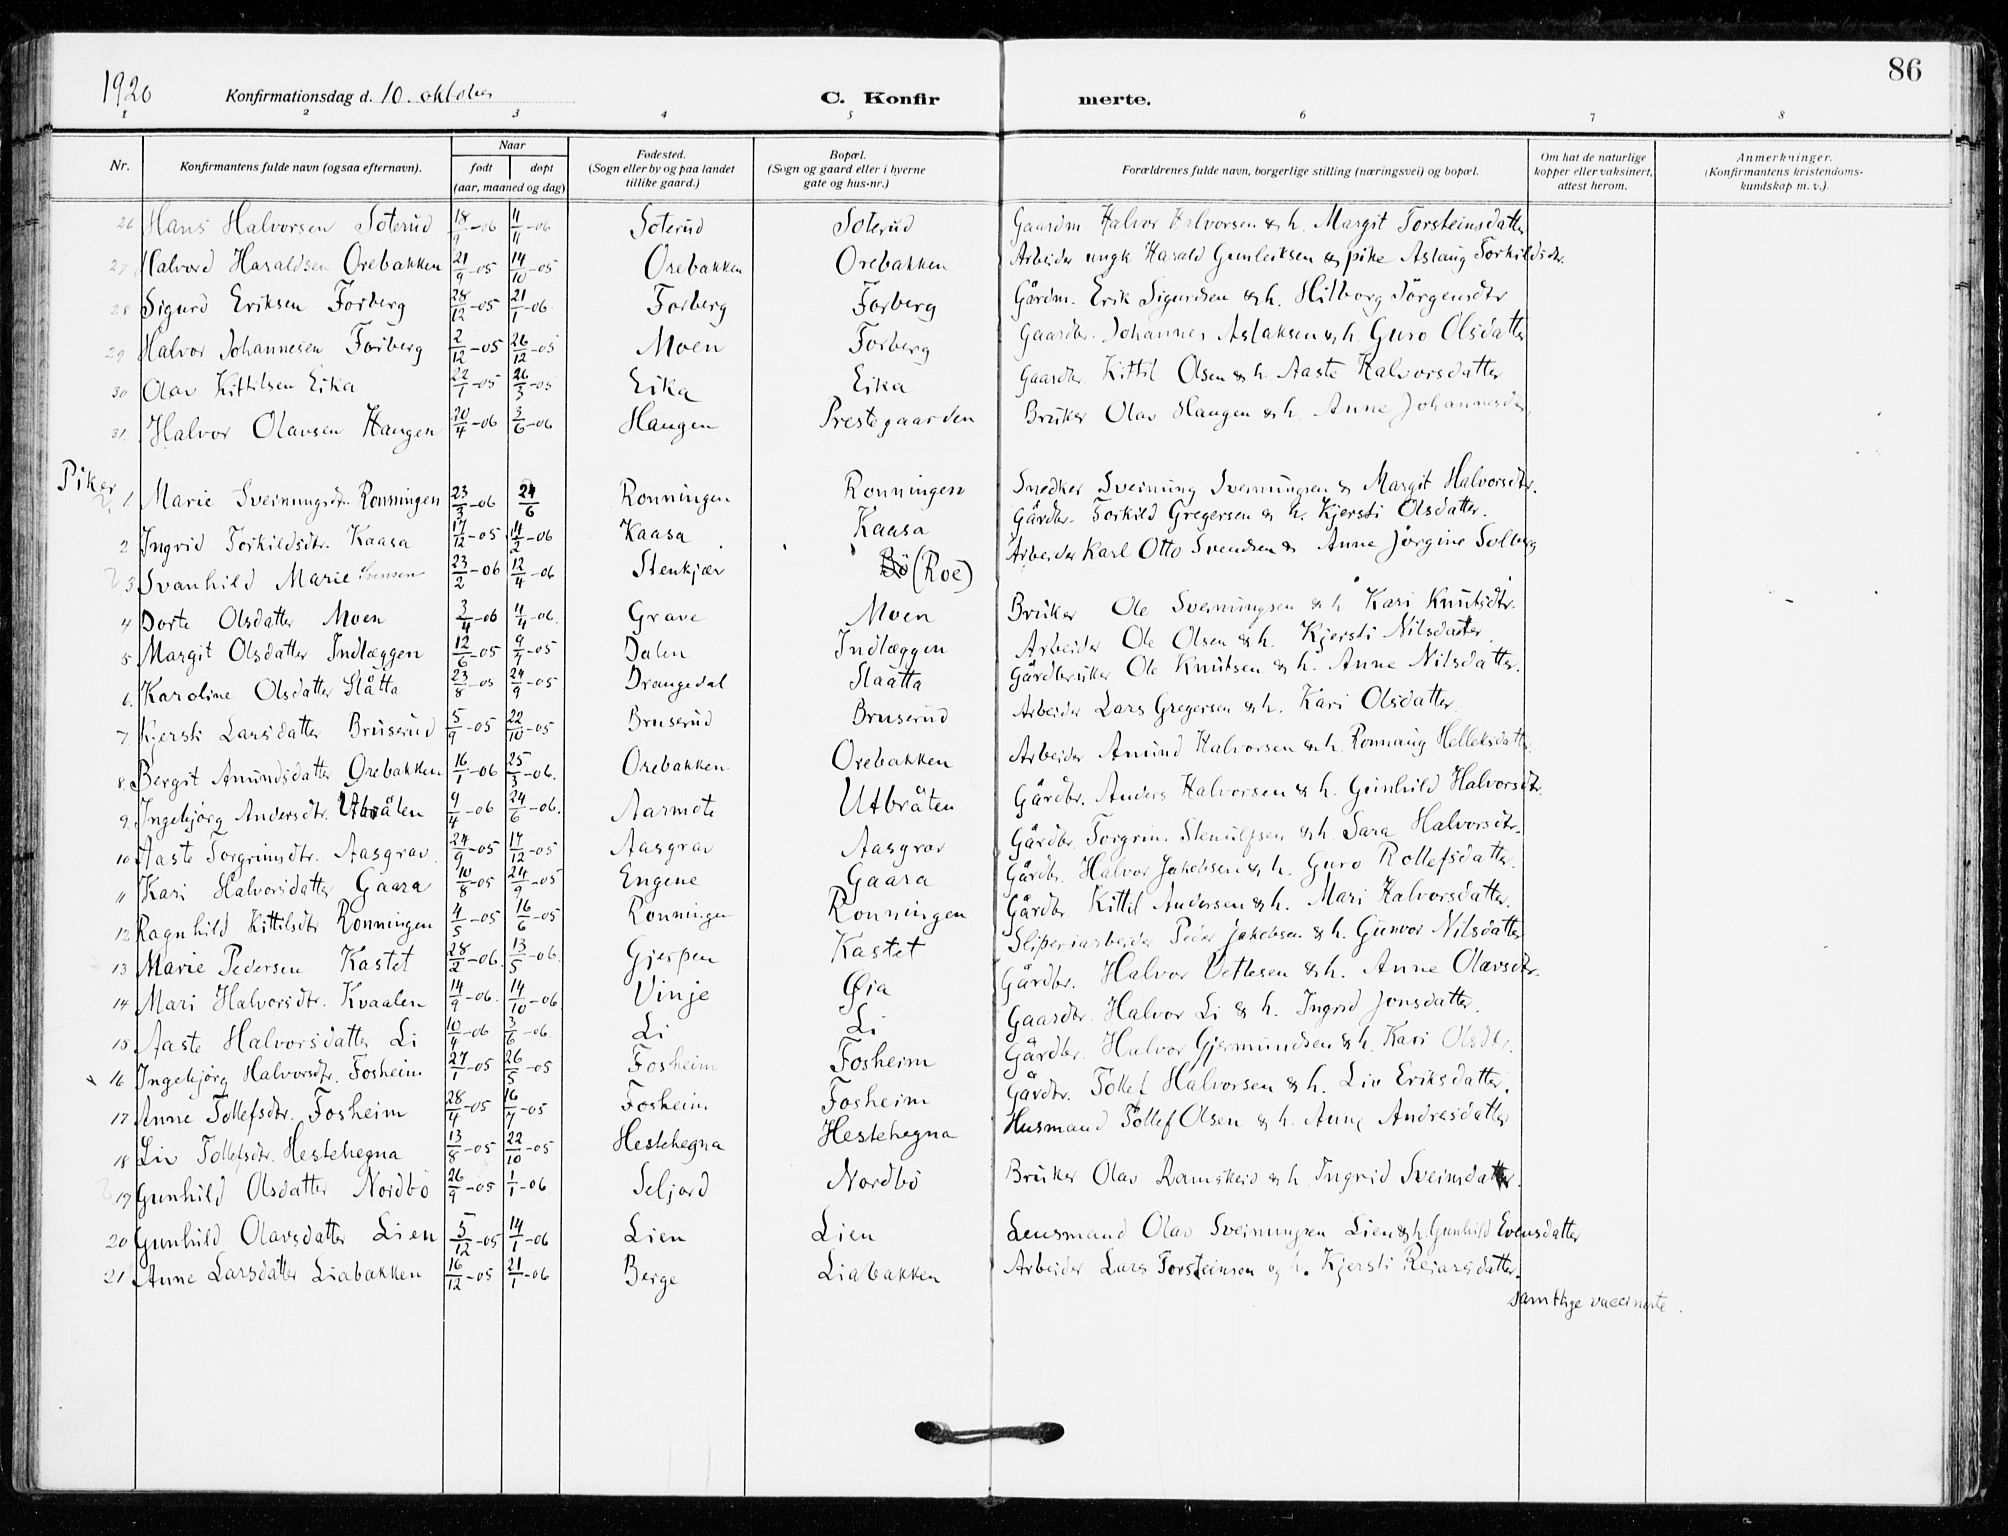 86
1920 Konfirmationsdag d. 10. oktober C. Konfirmerte.
1 2 3 4 5 6 7 8
Nr. Konfirmantens fulde navn (ogsaa efternavn). Naar født døpt (aar, maaned og dag) Fødested. (Sogn eller by og paa landet tillike gaard.) Bopæl. (Sogn og gaard eller i byerne gate og hus-nr.) Forældrenes fulde navn, borgerlige stilling (næringsvei) og bopæl. Om hat de naturlige kopper eller vaksinert, attest herom. Anmerkninger. (Konfirmantens kristendomskundskap m. v.).
26 Hans Halvorsen Soterud 18/9-06 11/11-06 Soterud Soterud Gaardm Halvor Halvorsen & h. Margit Torsteinsdatter
27 Halvord Haraldsen Orebakken 21/9-05 14/10-05 Orebakken Orebakken Arbeider ungk Harald Gunleiksen & pike Aslaug Torkildsdtr.
28 Sigurd Eriksen Forberg 28/12-05 21/1-06 Forberg Forberg Gårdm. Erik Sigurdsen & h. Hilborg Jörgensdtr
29 Halvor Johannesen Forberg 2/12-05 26/12-05 Moen Forberg Gaardbr. Johannes Aslaksen & h. Guro Olsdatter
30 Olav Kittilsen Eika 22/1-05 26/3-05 Eika Eika Gaardbr Kittil Olsen & h. Aaste Halvorsdatter
31. Halvor Olavsen Haugen 20/4-06 3/6-06 Haugen Prestegaarden Bruker Olav Haugen & h. Anne Johannesd
Piker
1. Marie Sveinungsdtr. Ronningen 23/3-06 24/6 Ronningen Ronningen Snedker Sveinung Sveinungsen & Margit Halvorsdtr.
2 Ingrid Torkildsdtr. Kaasa 17/12-05 11/2-06 Kaasa Kaasa Gårdbr. Torkild Gregersen & h. Kjersti Olsdatter.
3 Svanhild Marie Svensen 23/2-06 12/4-06 Stenkjær Bö (Roe) Arbeider Karl Otto Svendsen & Anne Jörgine Solberg
4 Dorte Olsdatter Moen 3/4-06 4/4-06. Grave Moen Bruker Ole Sveinungsen & h Kari Knutsdtr.
5 Margit Olsdatter Indlæggen 12/6-05 9/7-05 Dalen Indlæggen Arbeider Ole Olsen & h. Kjersti Nilsdatter.
6. Karoline Olsdatter Slåtta 23/8-05 24/9-05 Drangedal Slaatta Gårdbruker Ole Knutsen & h. Anne Nilsdatter.
7. Kjersti Larsdatter Bruserud 5/9-05 22/10-05 Bruserud Bruserud Arbeider Lars Gregersen & h. Kari Olsdatter.
8. Bergit Amundsdatter Orebakken 16/1-06 25/3-06. Orebakken Orebakken Arbeider Amund Halvorsen & h. Ronnaug Helleksdatter.
9. Ingebjørg Andersdtr. Utbråten 9/4-06 24/6-06. Aarmote Utbråten Gårdbr. Anders Halvorsen & h. Gunhild Halvorsdtr.
10 Aaste Torgrimsdtr. Aasgrav 24/9-05 17/12-05 Aasgrav Aasgrav Gårdbr. Torgrim Stenulfsen & h. Sara Halvorsdtr.
11 Kari Halvorsdatter Gaara 10/8-05 24/9-05 Engene Gaara Gårdbr. Halvor Jakobsen & h. Guro Rollefsdatter.
12 Ragnhild Kittilsdtr Ronningen 4/5-05 16/6-05 Ronningen Ronningen Gårdbr Kittil Andersen & h. Mari Halvorsdatter.
13 Marie Pedersen Kastet 28/2-06. 13/5-06. Gjerpen Kastet Sliperiarbeider Peder Jakobsen & h. Gunvor Nilsdatter
14 Mari Halvorsdtr. Kvaalen 14/9-06. 14/10-06 Vinje Øia Gårdbr. Halvor Vetlesen & h. Anne Olavsdtr.
15 Aaste Halvorsdatter Li 10/4-06 3/6-06 Li Li Gaardbr. Halvor Li & h. Ingrid Jonsdatter.
16 Ingebjørg Halvorsdtr. Fosheim 27/1-05 26/5-05 Fosheim Fosheim Gårdbr. Halvor Gjermundsen & h. Kari Olsdtr.
17 Anne Tollefsdtr. Fosheim 28/4-05 16/7-05 Fosheim Fosheim Gårdbr. Tollef Halvorsen & h. Liv Eriksdatter.
18 Liv Tollefsdtr. Hestehegna 13/8-05 22/10-05 Hestehegna Hestehegna Husmand Tollef Olsen & h. Anne Andresdatter
19 Gunhild Olsdatter Nordbö 26/9-05 1/1-06 Seljord Nordbö Bruker Olav Ramskeid & h. Ingrid Sveinsdatter.
20 Gunhild Olavsdatter Lien 5/12-05 14/1-06 Lien Lien Lensmand Olav Sveinungsen Lien & h. Gunhild Evensdatter
21 Anne Larsdatter Liabakken 16/12-05 21/1-06 Berge Liabakken Arbeider Lars Torsteinson og h. Kjersti Reiarsdatter.
Samtlige vaccinerte.